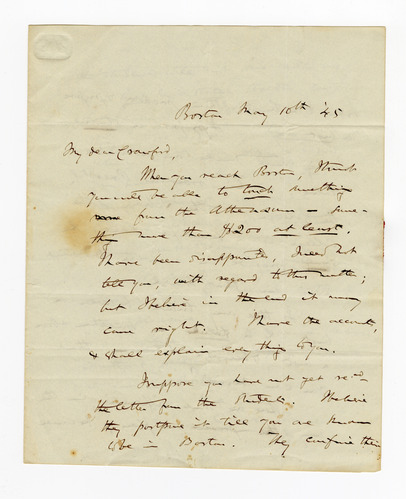 Boston May 10th '45
My dear Crawford,
When you reach Boston, I think
you will be able to touch something
from the Athenaeum – some-
thing more than $200 at least.
I have been disappointed, I need not
tell you, with regard to this matter;
but I believe in the end it may
come right. I have the account,
& shall explain everything to you.
I suppose you have not yet recd
the letter from the Students. I believe
they postpone it till you are known
to be in Boston. They confine their